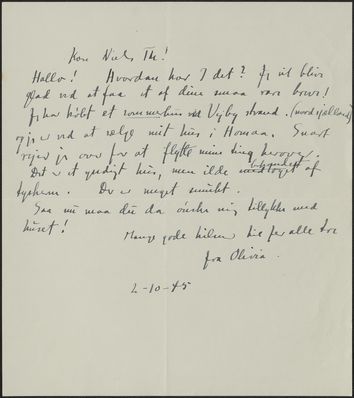 Kære Niels Th!
Hallo! Hvordan har I det? Jeg vil blive
glad ved at faa et af dine smaa rare breve!
Jeg har købt et sommerhus ved Vejby strand. (nordsjælland)
og jeg er ved at sælge mit hus i Hornbæk. Snart
rejser jeg over for at flytte mine ting herover.
Det er et yndigt hus, men ilde medtaget af
tyskerne. Der er meget smukt.
Saa nu maa du da ønske mig tillykke med
huset!
Mange gode hilsner til jer alle tre
fra Olivia
2-10-45